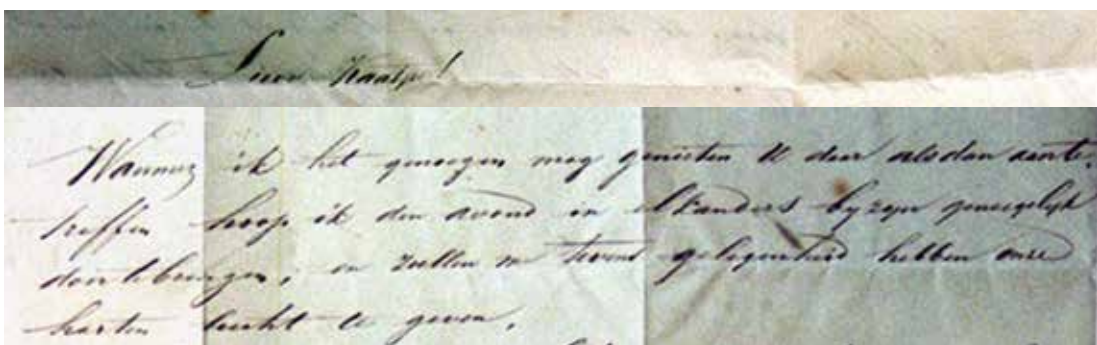 Lieve Kaatje!
Wanneer ik het genoegen mag genieten U daar alsdan aante
treffen hoop ik den avond in elkanders byzyn genoegelyk
doortebrengen, en zullen we tevens gelegenheid hebben onze
harten lucht te geven.